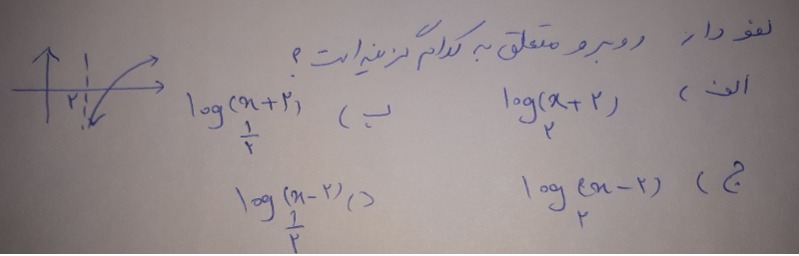 نمودار روبرو متعلق به کدام گزینه است ؟
الف ) log(x+۲) ۲ ب ) log(x+۲) ۱/۲
ج ) log(x-۲) ۲ د ) log(x-۲) ۱/۲
۲